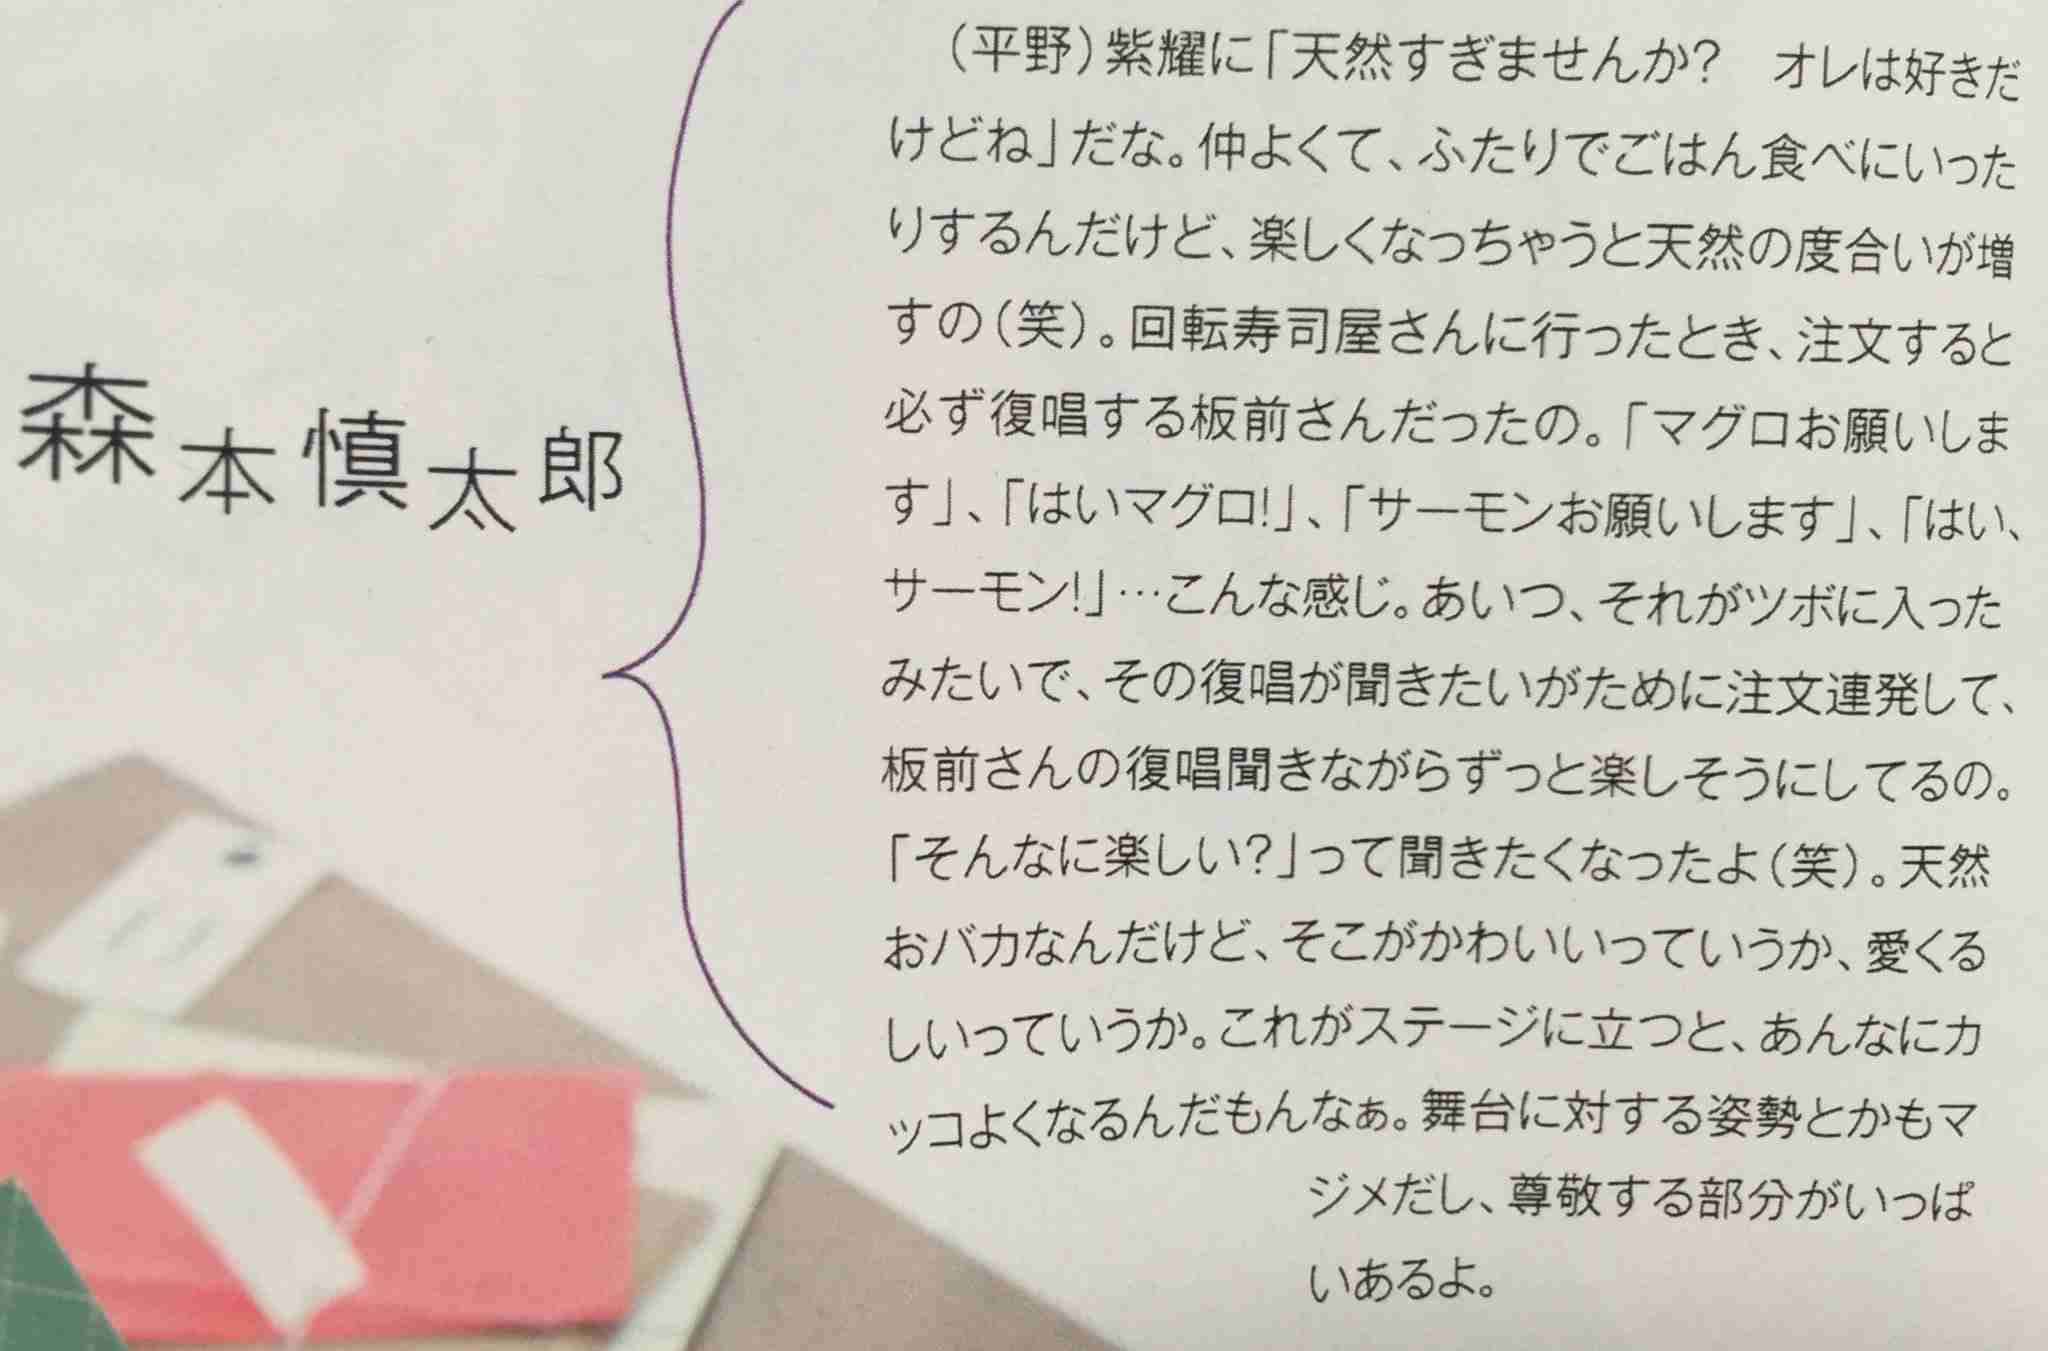 森本慎太郎
（平野）紫耀に「天然すぎませんか?　オレは好きだ
けどね」だな。仲よくて、ふたりでごはん食べにいった
りするんだけど、楽しくなっちゃうと天然の度合いが増
すの（笑）。回転寿司屋さんに行ったとき、注文すると
必ず復唱する板前さんだったの。「マグロお願いしま
す」、「はいマグロ!」、「サーモンお願いします」、「はい、
サーモン!」…こんな感じ。あいつ、それがツボに入った
みたいで、その復唱が聞きたいがために注文連発して、
板前さんの復唱聞きながらずっと楽しそうにしてるの。
「そんなに楽しい?」って聞きたくなったよ（笑）。天然
おバカなんだけど、そこがかわいいっていうか、愛くる
しいっていうか。これがステージに立つと、あんなにカ
ッコよくなるんだもんなぁ。舞台に対する姿勢とかもマ
ジメだし、尊敬する部分がいっぱ
いあるよ。